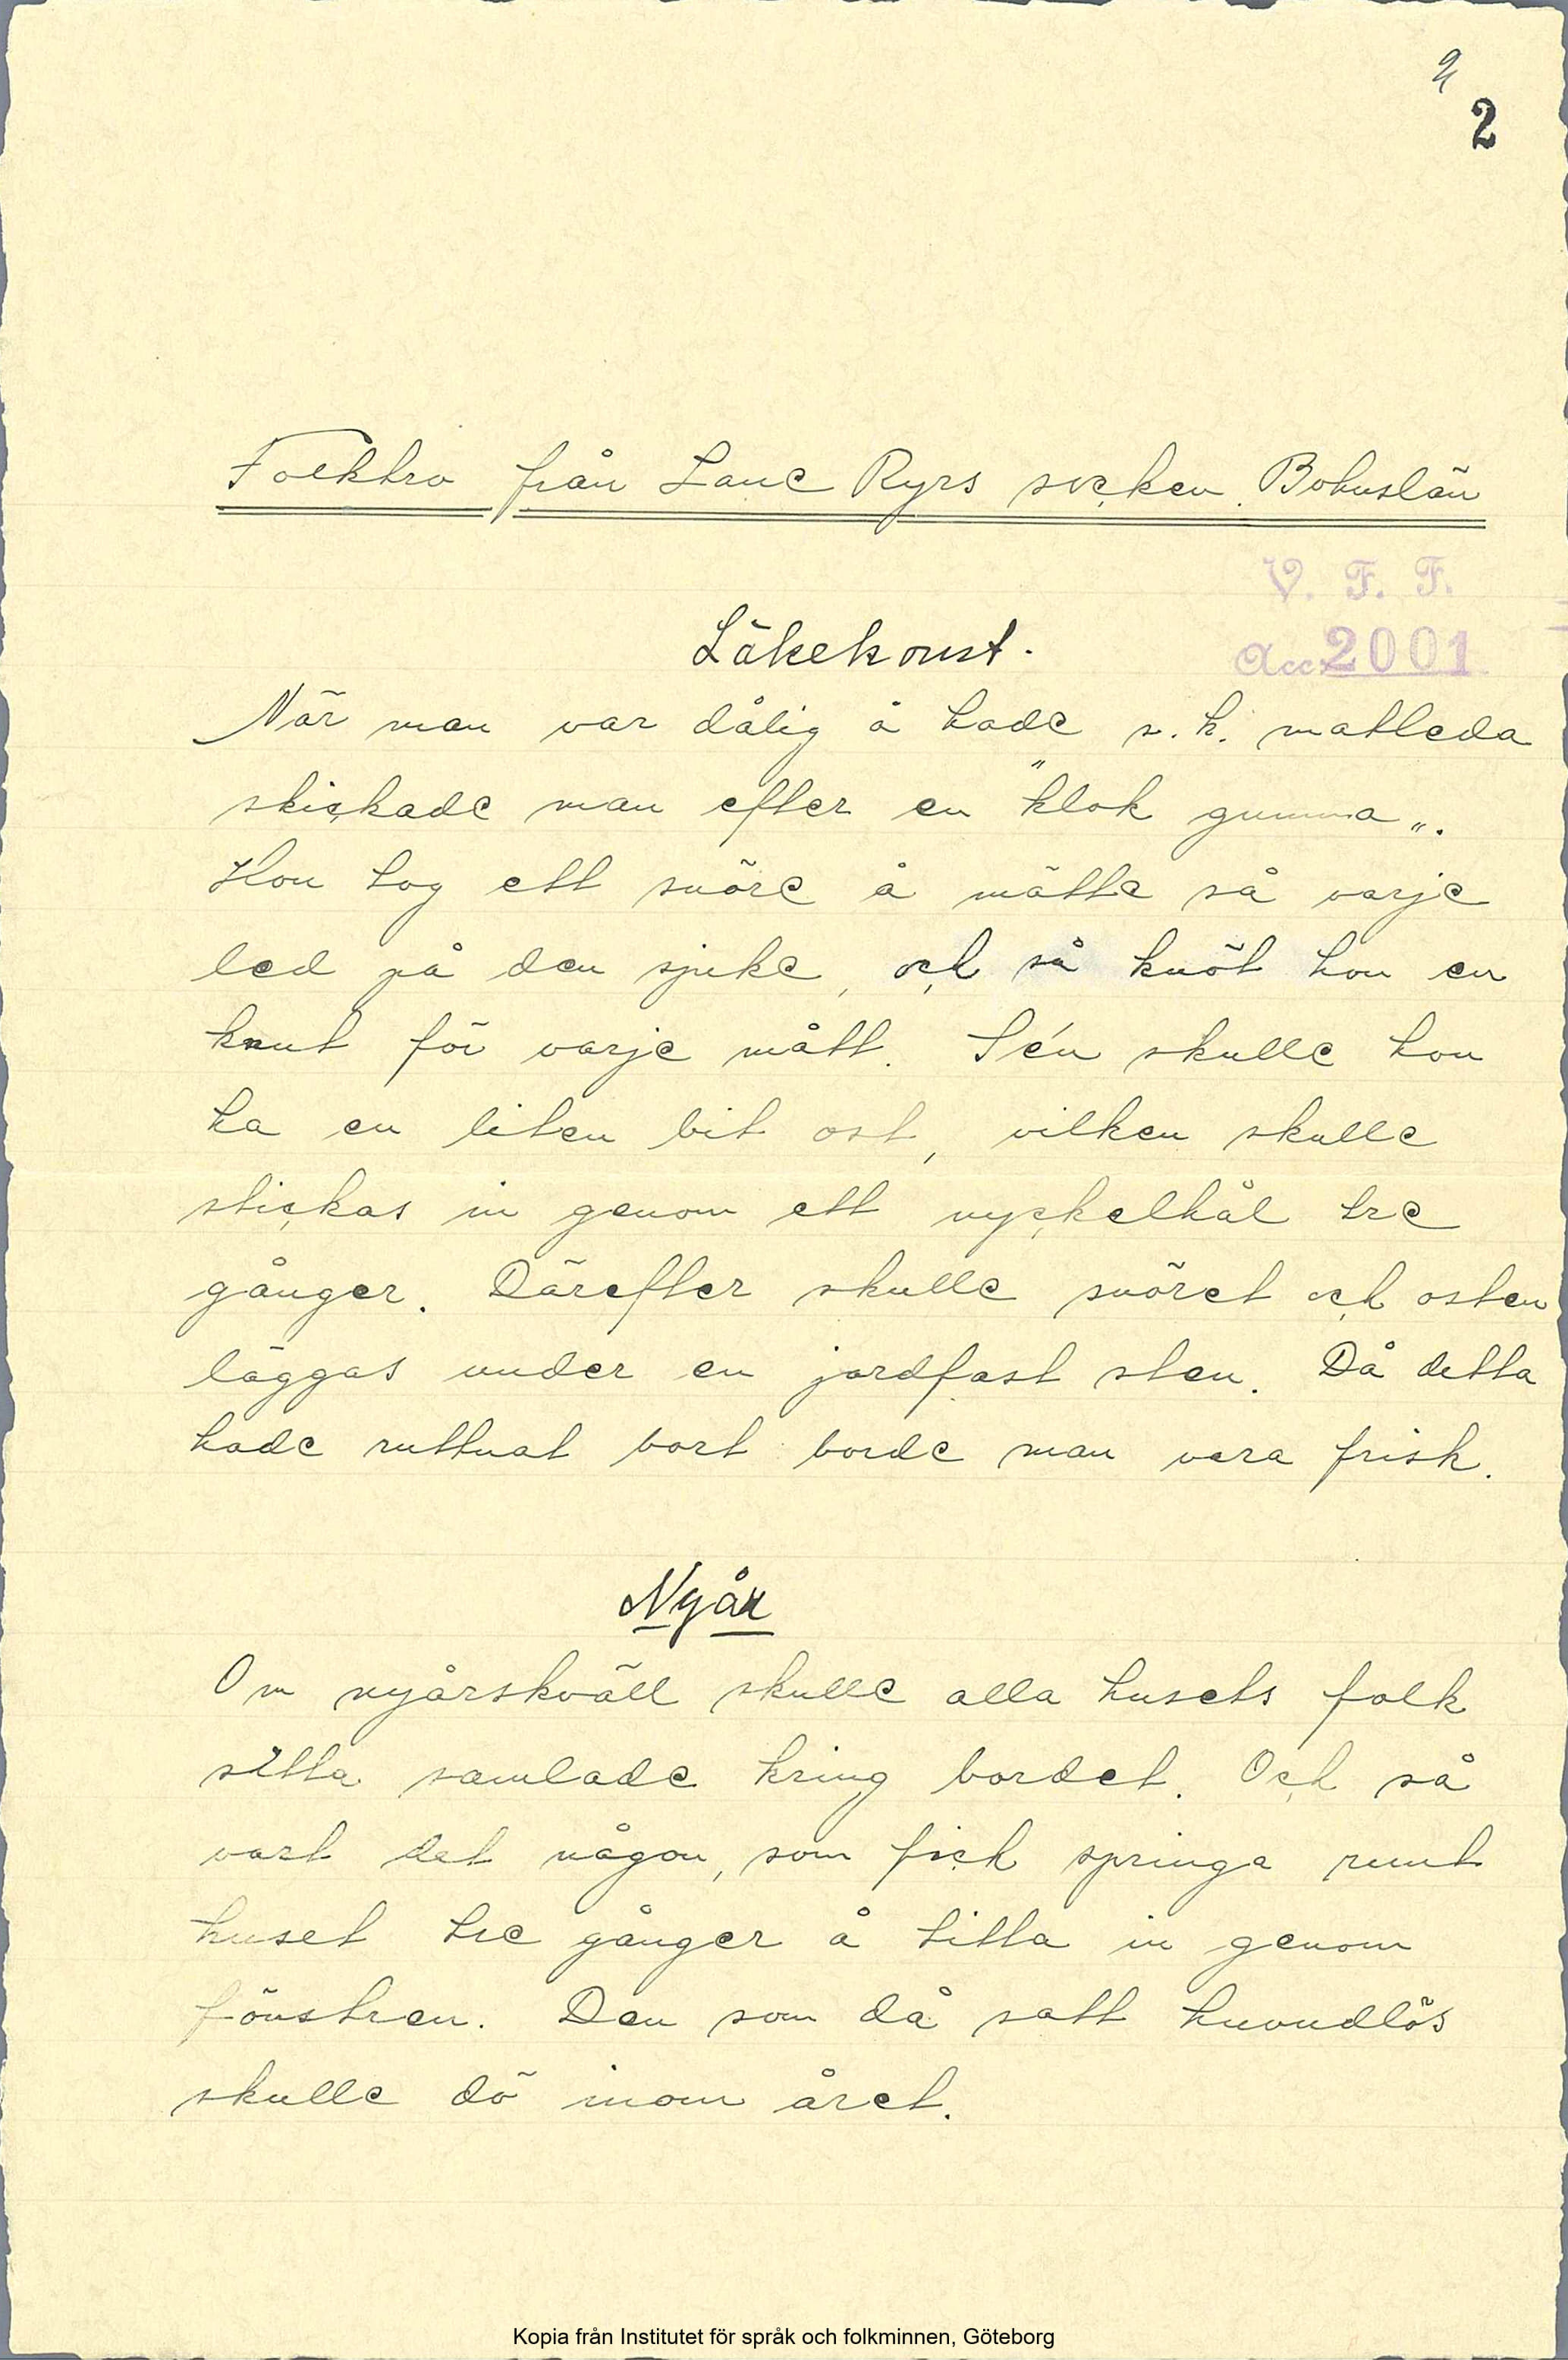 2
2
Folktro från Lane Ryrs socken. Bohuslän
V. F. F.
Acc. 2001
Läkekonst.
När man var dålig å hade s.k. matleda
skickade man efter en "klok gumma".
Hon tog ett snöre å mätte så varje
led på den sjuke, och så knöt hon en
knut för varje mått. Sén skulle hon
ha en liten bit ost, vilken skulle
stickas in genom ett nyckelhål tre
gånger. Därefter skulle snöret och osten
läggas under en jordfast sten. Då detta
hade ruttnat bort borde man vara frisk.
Nyår
Om nyårskväll skulle alla husets folk
sitta samlade kring bordet. Och så
vart det någon, som fick springa runt
huset tre gånger å titta in genom
fönstren. Den som då satt huvudlös
skulle dö inom året.
Kopia från Institutet för språk och folkminnen, Göteborg